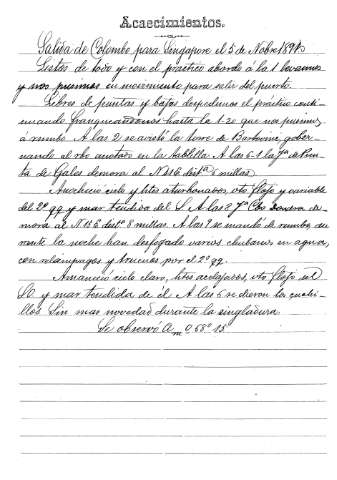 Acaecimientos.
Salida de Colombo para Singapore el 5 de Nobre 189
Listos de todo y con el práctico abordo á la 1 levamos
y nos pusimos en movimiento para salir del puerto.
Libres de puntas y bajos despedimos el práctico conti-
nuando franqueandonos hasta la 1-20 que nos pusimos
á rumbo A las 2 se avistó la torre de Barberini, gober-
nando al rbo anotado en la tablilla. A las 6-1 la fa de Pun-
ta de Gales demora al N 21 E dista 5 millas
Anocheció cielo y htes aturbonados vto flojo y variable
del 2º qq y mar tendida del S. A las 8 fa de-
mora al N 13 E dista 8 millas. A las 9 se mandó de rumbo du-
rante la noche han desfogado varios chubascos en agua,
con relampagos y truenos por el 2º qq.
Amaneció cielo claro, htes acelajados, vto flojo del
SO y mar tendida de él A las 6 se dieron las cuati-
llos Sin mas novedad durante la singladura.
Se observó Am 0.58º 15